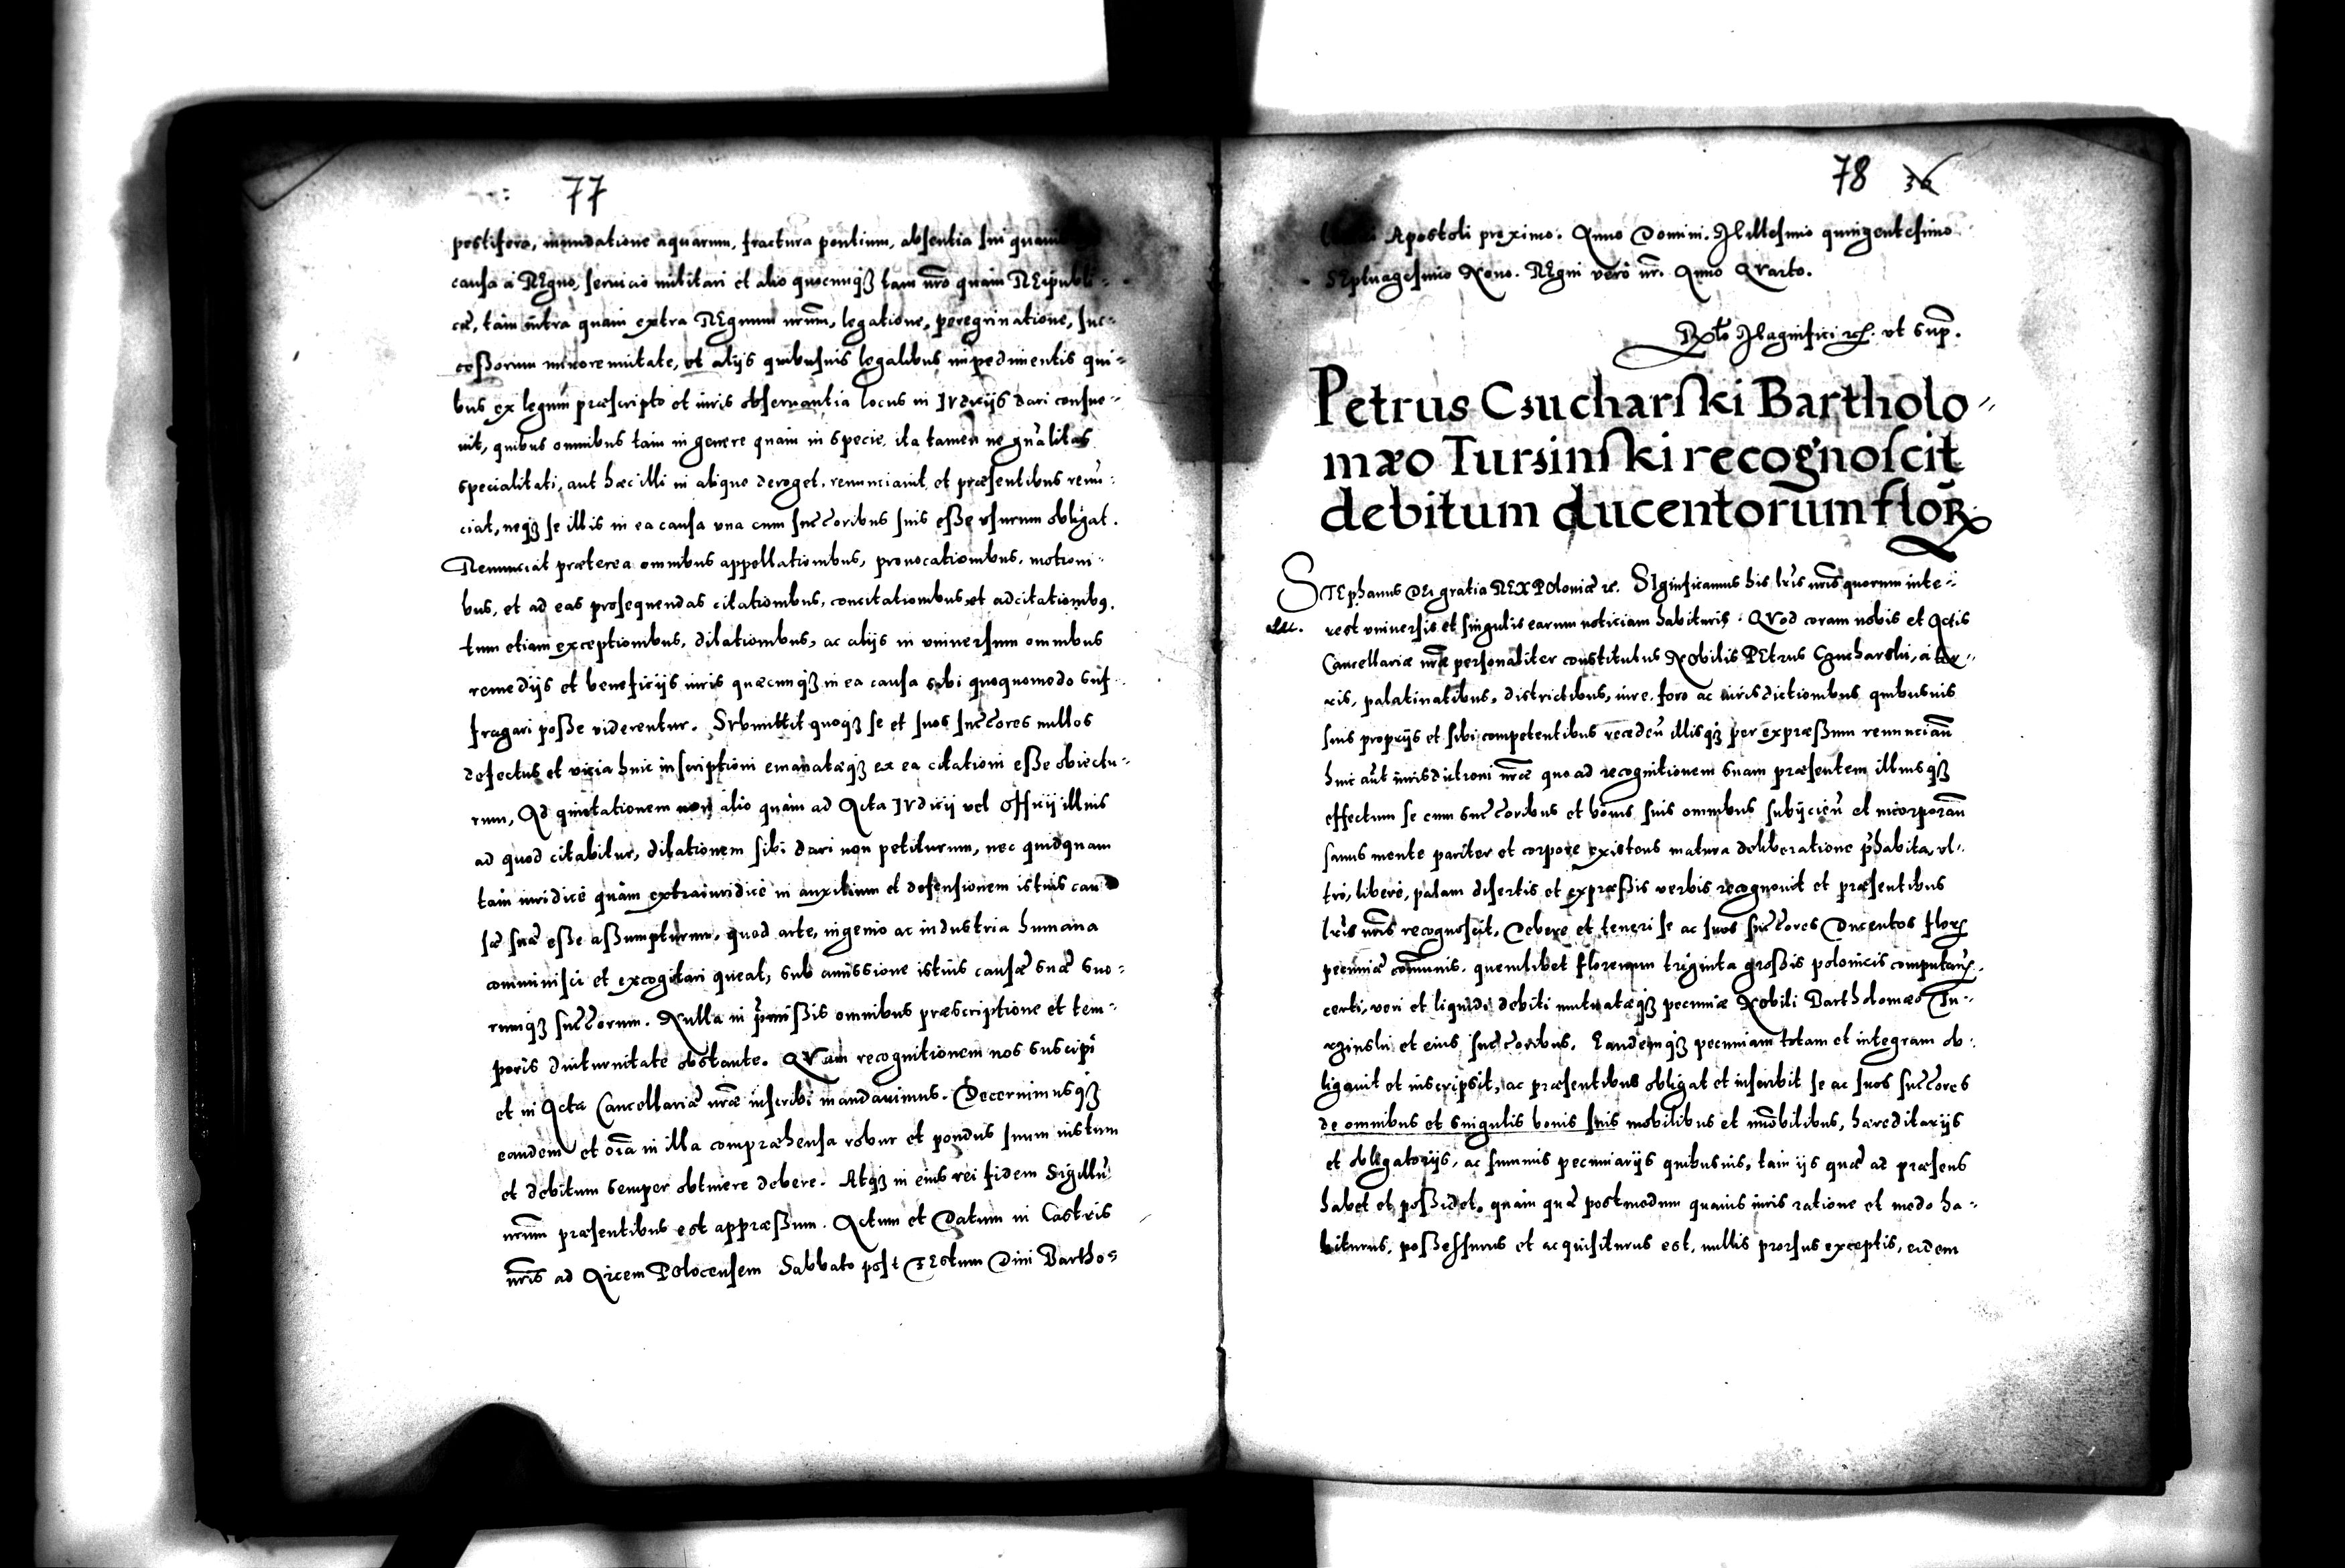 77
pestifera, inundatione aquarum, fractura pontium, absentia sui
causa a REgno, servicio militari et alio quocunqȝ tam nr̃o quam REipubli-
cæ, tam intra quam extra REgnum nr̃um, legatione, peregrinatione, suc-
cessorum minorennitate, et alijs quibusuis legalibus impedimentis qui-
bus ex legum præscripto et iuris obseruantia locus in IVdicijs dari consue-
uit, quibus omnibus tam in genere quam in specie, ita tamen ne gn̄alitas
specialitati, aut hæc illi in aliquo deroget, renunciauit et præsentibus renū-
ciat, neqȝ se illis in ea causa vna cum succ̄oribus suis esse vsurum obligat.
Renunciat præterea omnibus appellationibus, prouocationibus, motioni-
bus, et ad eas prosequendas citationibus, concitationibus et adcitationibꝰ.
tum etiam exceptionibus, dilationibus, ac alijs in vniuersum omnibus
remedijs et beneficijs iuris quæcunqȝ in ea causa sibi quoquomodo suf-
fragari posse viderentur. SVbmittit quoqȝ se et suos succ̄ores nullos
defectus et vicia huic inscriptioni emanatæqȝ ex ea citationi esse obiectu-
rum, Ad quietationem non alio quam ad Acta IVdicij vel Officij illius
ad quod citabitur, dilationem sibi dari non petiturum, nec quidquam
tam iuridicè quàm extraiuridicè in auxilium et defensionem istius cau
sæ suæ esse assumpturum, quod arte, ingenio ac industria humana
comminisci et excogitari queat, sub amissione istius causæ suæ suo-
rumqȝ succ̄orum. Nulla in p̄missis omnibus præscriptione et tem-
poris diuturnitate obstante. QVam recognitionem nos suscipi
et in Acta Cancellariæ nr̃æ inscribi mandauimus. Decernimusqȝ
eandem et oĩa in illa compræhensa robur et pondus suum iustum
et debitum semper obtinere debere. Atqȝ in eius rei fidem Sigillũ
nr̃um præsentibus est appræssum. Actum et Datum in Castris
nr̃is ad Arcem Polocensem Sabbato post FEstum Diui Bartho-
78 36
Apostoli proximo. Anno Domini. Millesimo quingentesimo
SEptuagesimo Nono. REgni verò nr̃i. Anno QVarto.
Rel̃o Magnifici etc. vt sup̃.
Petrus Czucharski Bartholo-
mæo Tursinski recognoscit
debitum ducentorum florꝝ
STEphanus DEi gratia REX POloniæ etc. SIgnificamus his lr̃is nr̃is quorum inte-
rest vniuersis et singulis earum noticiam habituris. QVod coram nobis et Actis
Cancellariæ nr̃æ personaliter constitutus Nobilis PEtrus Czucharski, à ter-
ris, palatinatibus, districtibus, iure, foro ac iurisdictionibus quibusuis
suis proprijs et sibi competentibus recedeñ illisqȝ per expræssum renunciañ
huic aut̃ iurisdictioni nr̃æ quo ad recognitionem suam præsentem illiusqȝ
effectum se cum succ̄oribus et bonis suis omnibus subijcieñ et incorporañ
sanus mente pariter et corpore existens matura deliberatione p̄habita, vl-
trò, liberè, palam disertis et expræssis verbis recognouit et præsentibus
lr̃is nr̃is recognoscit, Debere et teneri se ac suos succ̄ores Ducentos florꝝ
pecuniæ com̄unis. quemlibet florenum triginta grossis polonicis computañ.
certi, veri et liquidi debiti mutuatæqȝ pecuniæ Nobili Bartholomæo Tu-
rzinski et eius succ̄oribus. Eandemqȝ pecuniam totam et integram ob-
ligauit et inscripsit, ac præsentibus obligat et inscribit se ac suos succ̄ores
de omnibus et singulis bonis suis mobilibus et im̄obilibus, hæreditarijs
et obligatorijs, ac summis pecuniarijs quibusuis, tam ijs quæ ad præsens
habet et possidet, quàm quæ postmodum quauis iuris ratione et modo ha-
biturus, possessurus et acquisiturus est, nullis prorsus exceptis, eidem